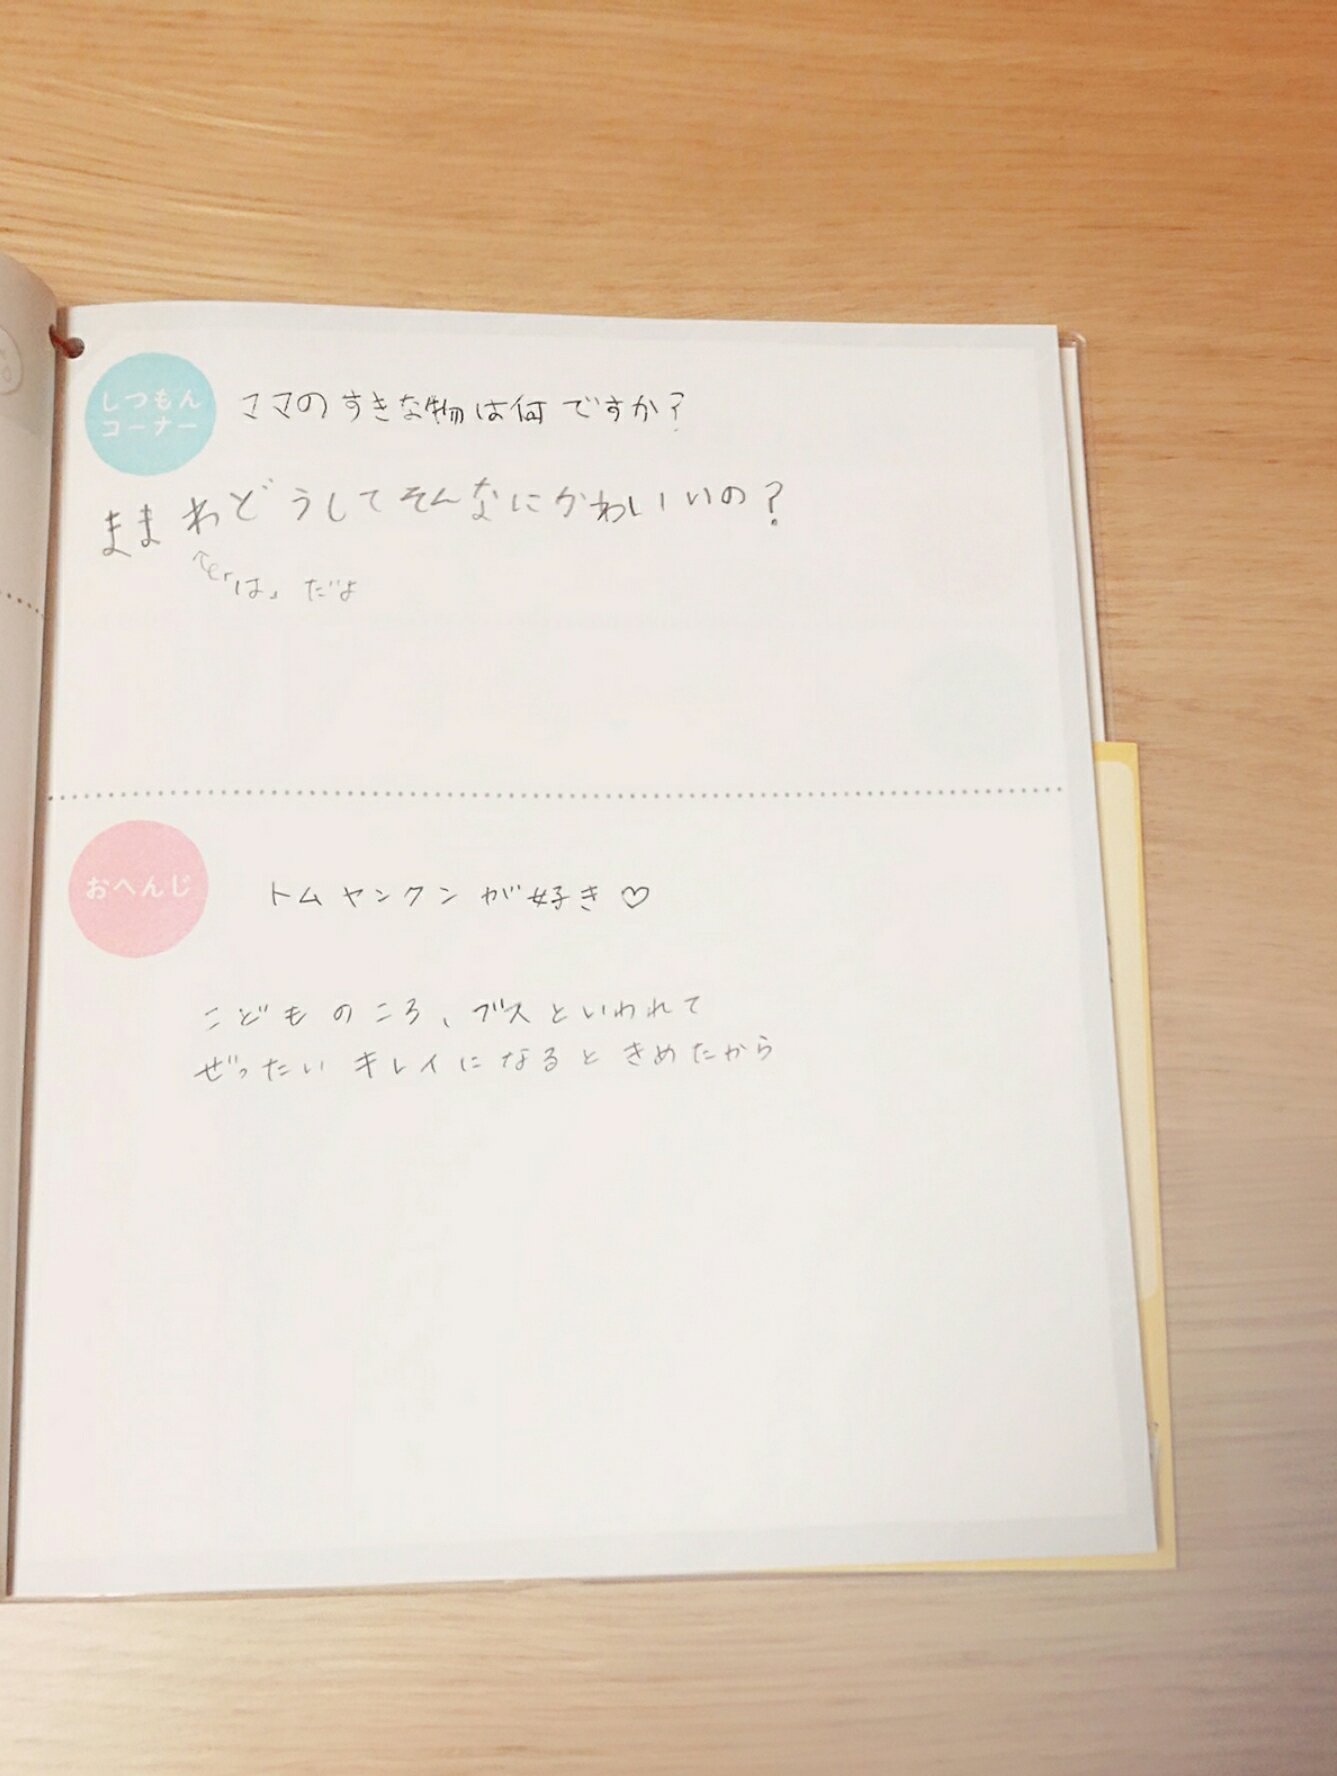 しつもん
コーナー
ママのすきな物は何ですか?
ままわどうしてそんなにかわいいの?
は」だよ
おへんじ
トムヤンクンが好き♡
こどものころ、ブスといわれて
ぜったいキレイになるときめたから